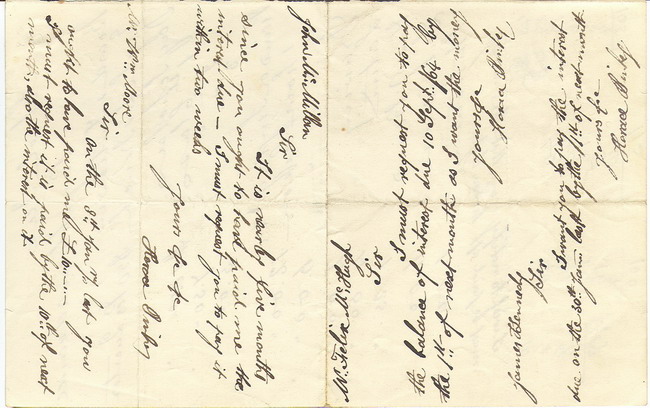 John McMillan
Sir
It is nearly five months
since you ought to have paid me the
interest due — I must request you to pay it
within two weeks
yours &c &c
Horace Pinhey
Mr. Wm More
Sir
On the 8th Jany last you
ought to have paid me
I must request it is paid by the 10th of next
month, also the interest on it
Mr. Felix McHugh
Sir
I must request you to pay
the balance of interest due 10 Sept. 64 by
the 1st. of next month as I want the money
yours &c
Horace Pinhey
James Kennedy
Sir
I want you to pay the interest
due on the 30th Jany last by the 1st. of next month
yours &c
Horace Pinhey